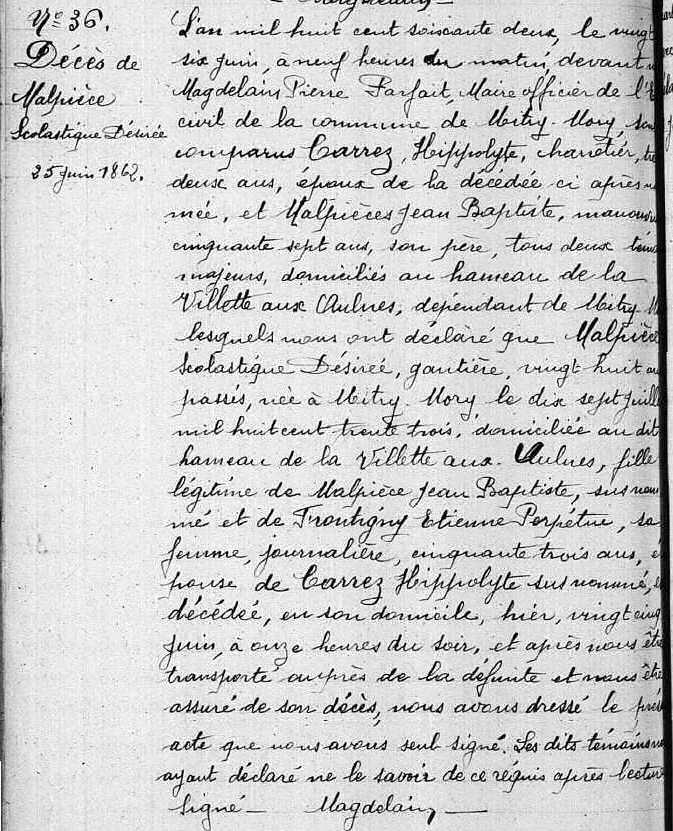 Nº 36.
Décès de
Malpièce
Scolastique Désirée
25 juin 1862.
L'an mil huit cent soixante deux, le vingt
six juin, à neuf heures du matin, devant
Magdelain Pierre Parfait, Maire officier de l'E
civil de la commune de Mitry-Mory, son
comparus Carrez, Hippolyte, charretier, tre
deux ans, époux de la décédée ci après no
mée, et Malpièces Jean Baptiste, manouvri
cinquante sept ans, son père, tous deux témo
majeurs, domiciliés au hameau de la
Villette aux Aulnes, dépendant de Mitry-M
lesquels nous ont déclaré que Malpièce
Scolastique Désirée, gantière, vingt huit an
passés, née à Mitry-Mory le dix sept juill
mil huit cent trente trois, domiciliée au dit
hameau de la Villette aux-Aulnes, fille
légitime de Malpièce Jean Baptiste, sus nom
mé et de Frontigny Etienne Perpétue, sa
femme, journalière, cinquante trois ans, é
pouse de Carrez Hippolyte sus nommé, e
décédée, en son domicile, hier, vingt cinq
juin, à onze heures du soir, et après nous être
transporté auprès de la défunte et nous être
assuré de son décès, nous avons dressé le prés
acte que nous avons seul signé. Les dits témoins n
ayant déclaré ne le savoir de ce requis après lecture
Signé — Magdelain —